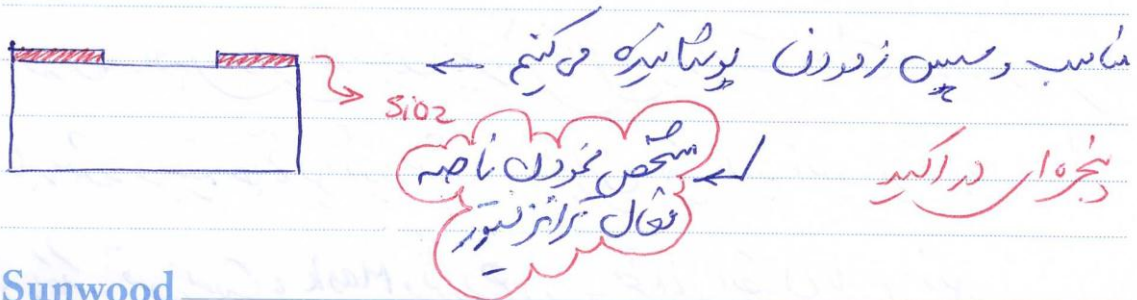 مناسب و سپس زدودن پوشانیده می‌کنیم ←
SiO2
پنجره‌ای در اکسید
مشخص نمودن ناحیه
فعال ترانزیستور
Sunwood